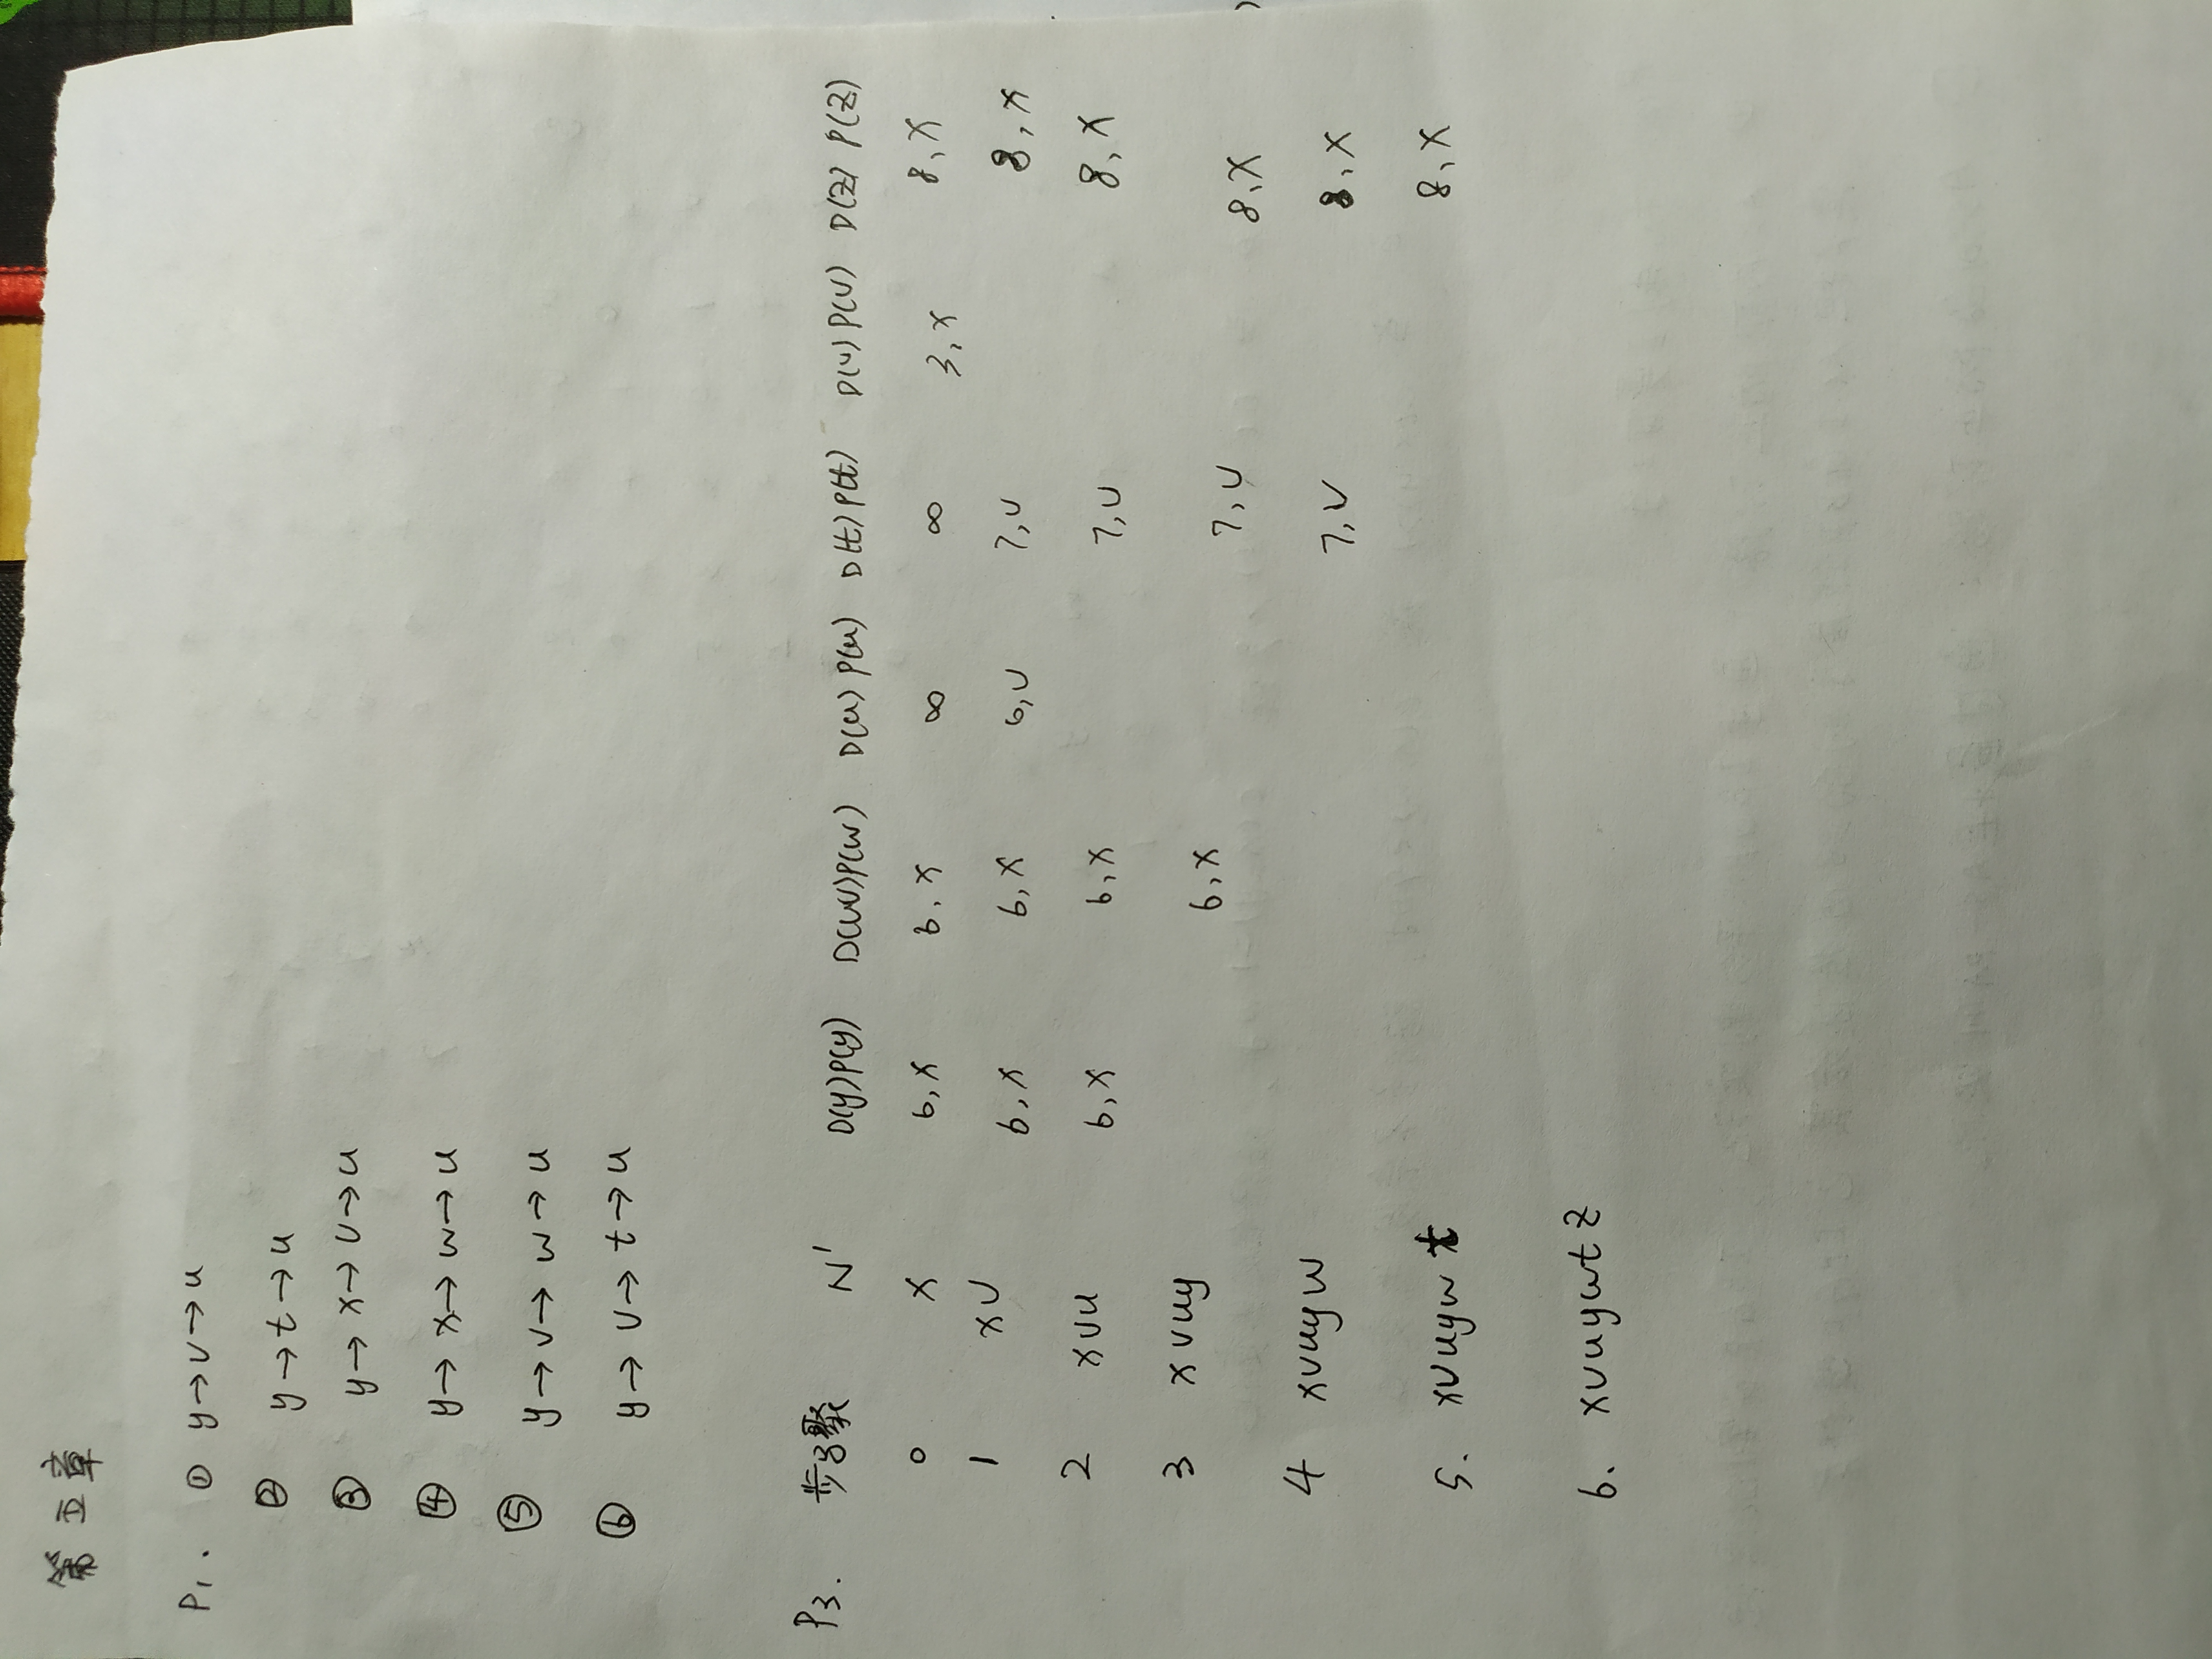 第五章
P1. ① y→v→u
② y→t→u
③ y→x→v→u
④ y→x→w→u
⑤ y→v→w→u
⑥ y→v→t→u
P3. 步骤 N' D(y)P(y) D(w)P(w) D(u) P(u) D(t) P(t) D(v) P(v) D(z) P(z)
0 x 6,x 6,x ∞ ∞ 3,x 8,x
1 xv 6,x 6,x 6,v 7,v 8,x
2 xvu 6,x 6,x 7,v 8,x
3 xvuy 6,x 7,v 8,x
4 xvuyw 7,v 8,x
5. xvuywt 8,x
6. xvuywtz